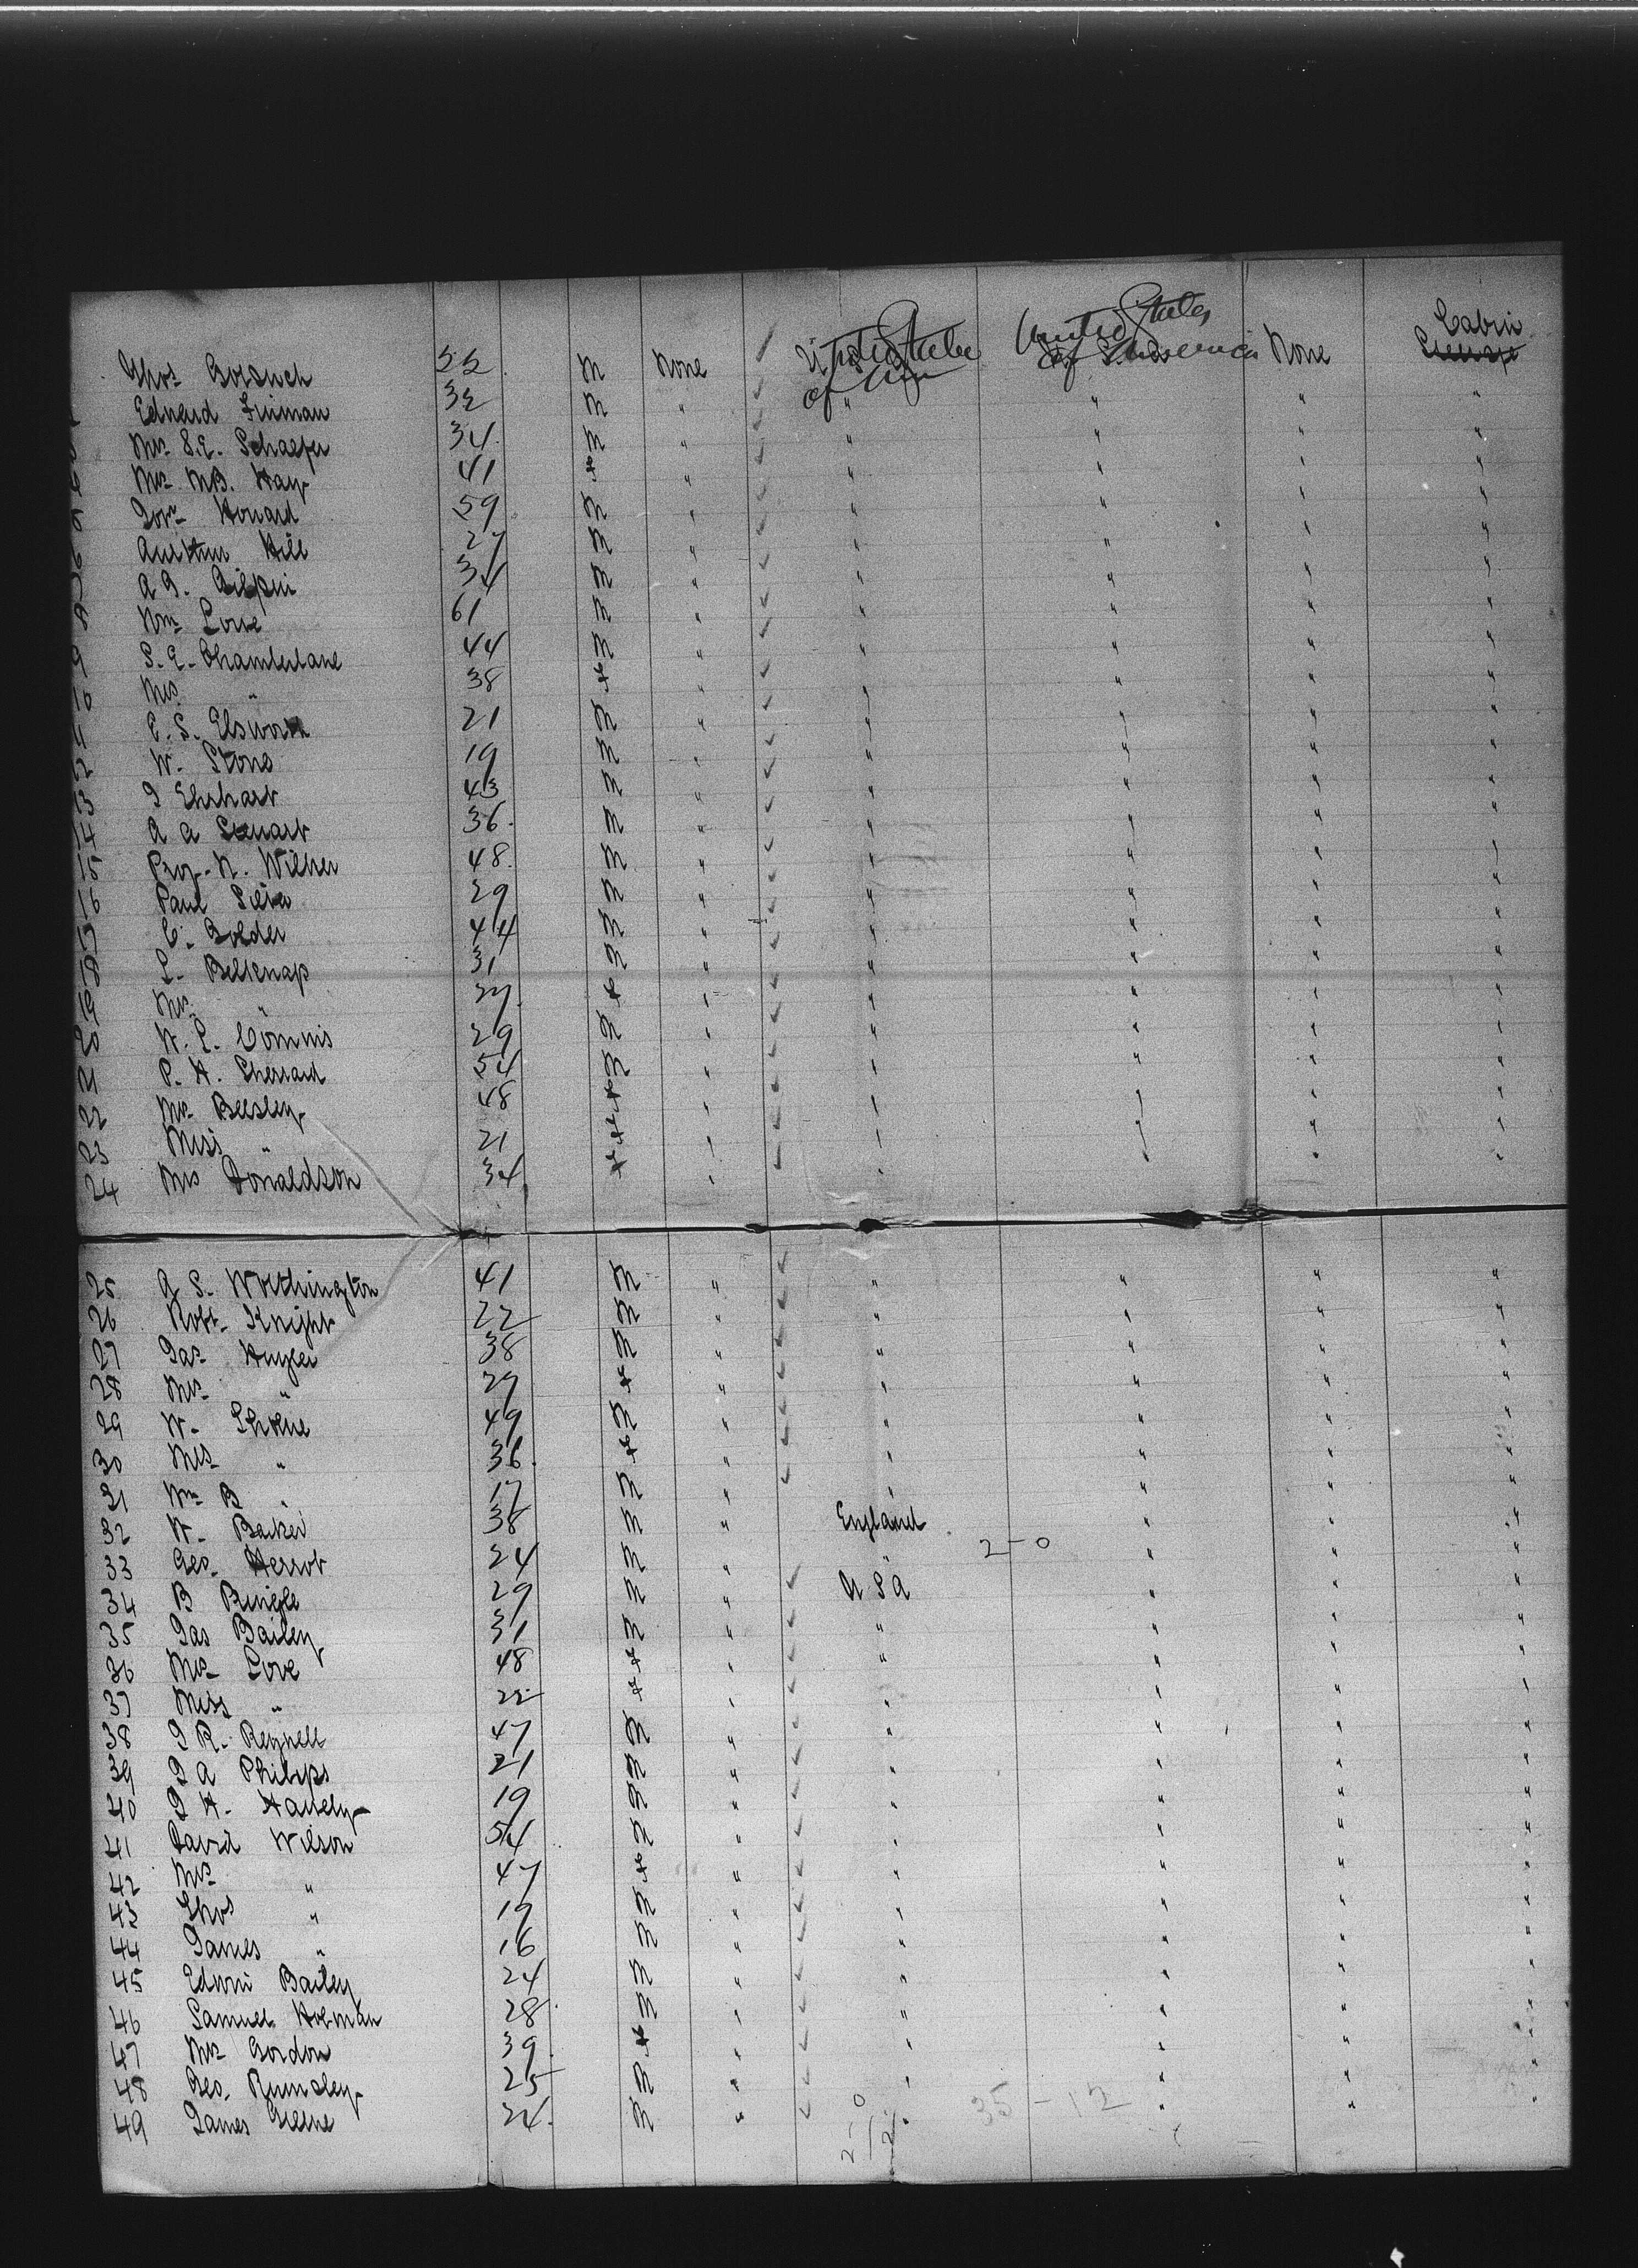 Thos. Gorsuch 52 M None United States of Am United States of America None Cabin
Edward Finman 32 M " " " " "
3 Mrs. S.E. Schaefer 34 M " " " " "
4 Mrs. M.B. Hay 41 F " " " " "
5 Howard 59 M " " " " "
6 Arthur Hill 27 M " " " " "
7 A G. Gilpin 34 M " " " " "
8 Wm Love 61 M " " " " "
9 S. E. Chamberlane 44 M " " " " "
10 Mrs " 38 F " " " " "
11 E. S. Elsworth 21 M " " " " "
12 W. Stone 19 M " " " " "
13 J Ehrhart 43 M " " " " "
14 A A Stewart 36 M " " " " "
15 Prof. N. Wilher 48 M " " " " "
16 Paul 29 M " " " " "
17 C. Golder 44 M " " " " "
18 L. Belknap 31 M " " " " "
19 Mrs. " 27 F " " " " "
20 H. L. 29 M " " " " "
21 P. H. Sherrard 54 M " " " " "
22 Mrs. Beesley 48 F " " " " "
23 Miss " 21 F " " " " "
24 Mrs Donaldson 34 F " " " " "
25 A S. Worthington 41 M " " " " "
26 Robt. Knight 22 M " " " " "
27 Jas. Huyler 38 M " " " " "
28 Mrs. " 29 F " " " " "
29 W. 49 M " " " " "
30 Mrs " 36 F " " " " "
31 Wm B " 17 M " " " " "
32 H. Barker 38 M " England " " "
33 Geo. Herrot 24 M " " 2-0 " " "
34 B Ringle 29 M " U S A " " "
35 Jas Bailey 31 M " " " " "
36 Mrs Love 48 F " " " " "
37 Miss " 22 F " " " " "
38 J R. Reynell 47 M " " " " "
39 J A Philips 21 M " " " " "
40 J H. 19 M " " " " "
41 David Wilson 54 M " " " " "
42 Mrs " 47 F " " " " "
43 Thos " 19 M " " " " "
44 James " 16 M " " " " "
45 Edwin Bailey 24 M " " " " "
46 Samuel Holman 28 M " " " " "
47 Mrs Gordon 39 F " " " " "
48 Geo. Rumsley 25 M " " " " "
49 James Greene 24 M " " 35-12 " " "